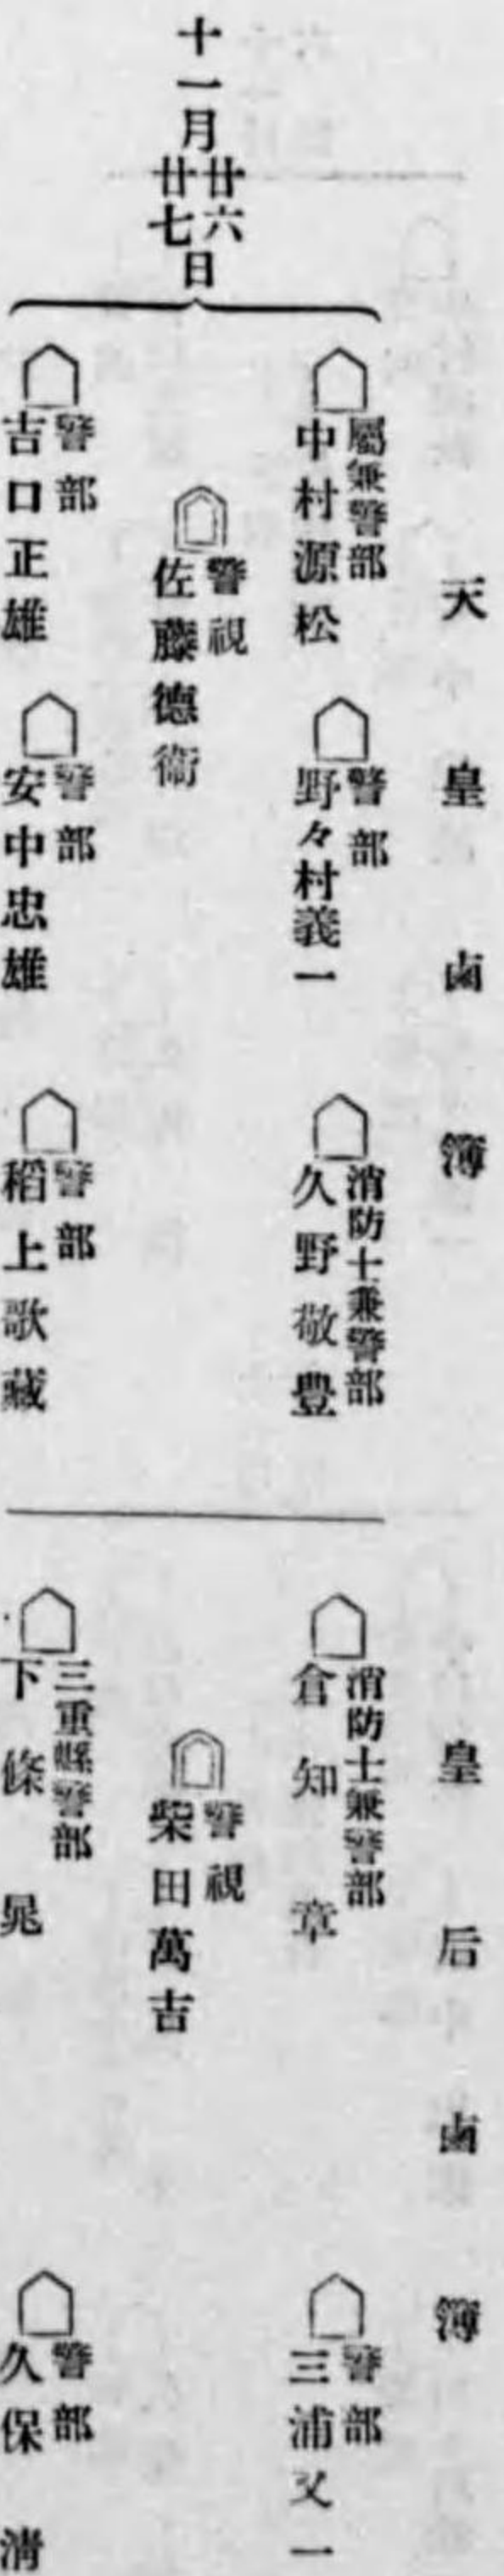 天皇鹵簿
皇后鹵簿
十一月廿六廿七日
屬兼警部
中村源松
警部
野々村義一
消防士兼警部
久野敬豊
警視
佐藤德衞
警部
吉口正雄
警部
安中忠雄
警部
稻上歌藏
消防士兼警部
倉知章
警部
三浦又一
警視
柴田萬吉
三重縣警部
下條晃
警部
久保淸